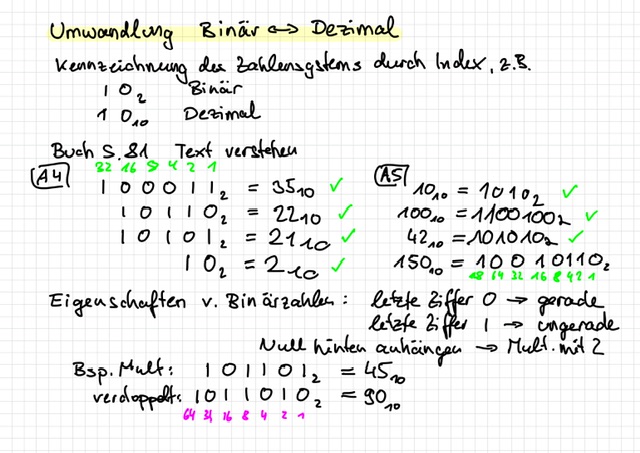 Umwandlung Binär ↔ Dezimal
Kennzeichnung des Zahlensystems durch Index, z.B.
1 0₂ Binär
1 0₁₀ Dezimal
Buch S. 81 Text verstehen
32 16 8 4 2 1
A4 1 0 0 0 1 1₂ = 35₁₀ ✓
1 0 1 1 0₂ = 22₁₀ ✓
1 0 1 0 1₂ = 21₁₀ ✓
1 0₂ = 2₁₀ ✓
A5 10₁₀ = 1010₂ ✓
100₁₀ = 1100100₂ ✓
42₁₀ = 101010₂ ✓
150₁₀ = 10010110₂
64 32 16 8 4 2 1
Eigenschaften v. Binärzahlen: letzte Ziffer 0 → gerade
letzte Ziffer 1 → ungerade
Null hinten anhängen → Mult. mit 2
Bsp. Mult: 1 0 1 1 0 1₂ = 45₁₀
verdoppelt: 1 0 1 1 0 1 0₂ = 90₁₀
64 32 16 8 4 2 1